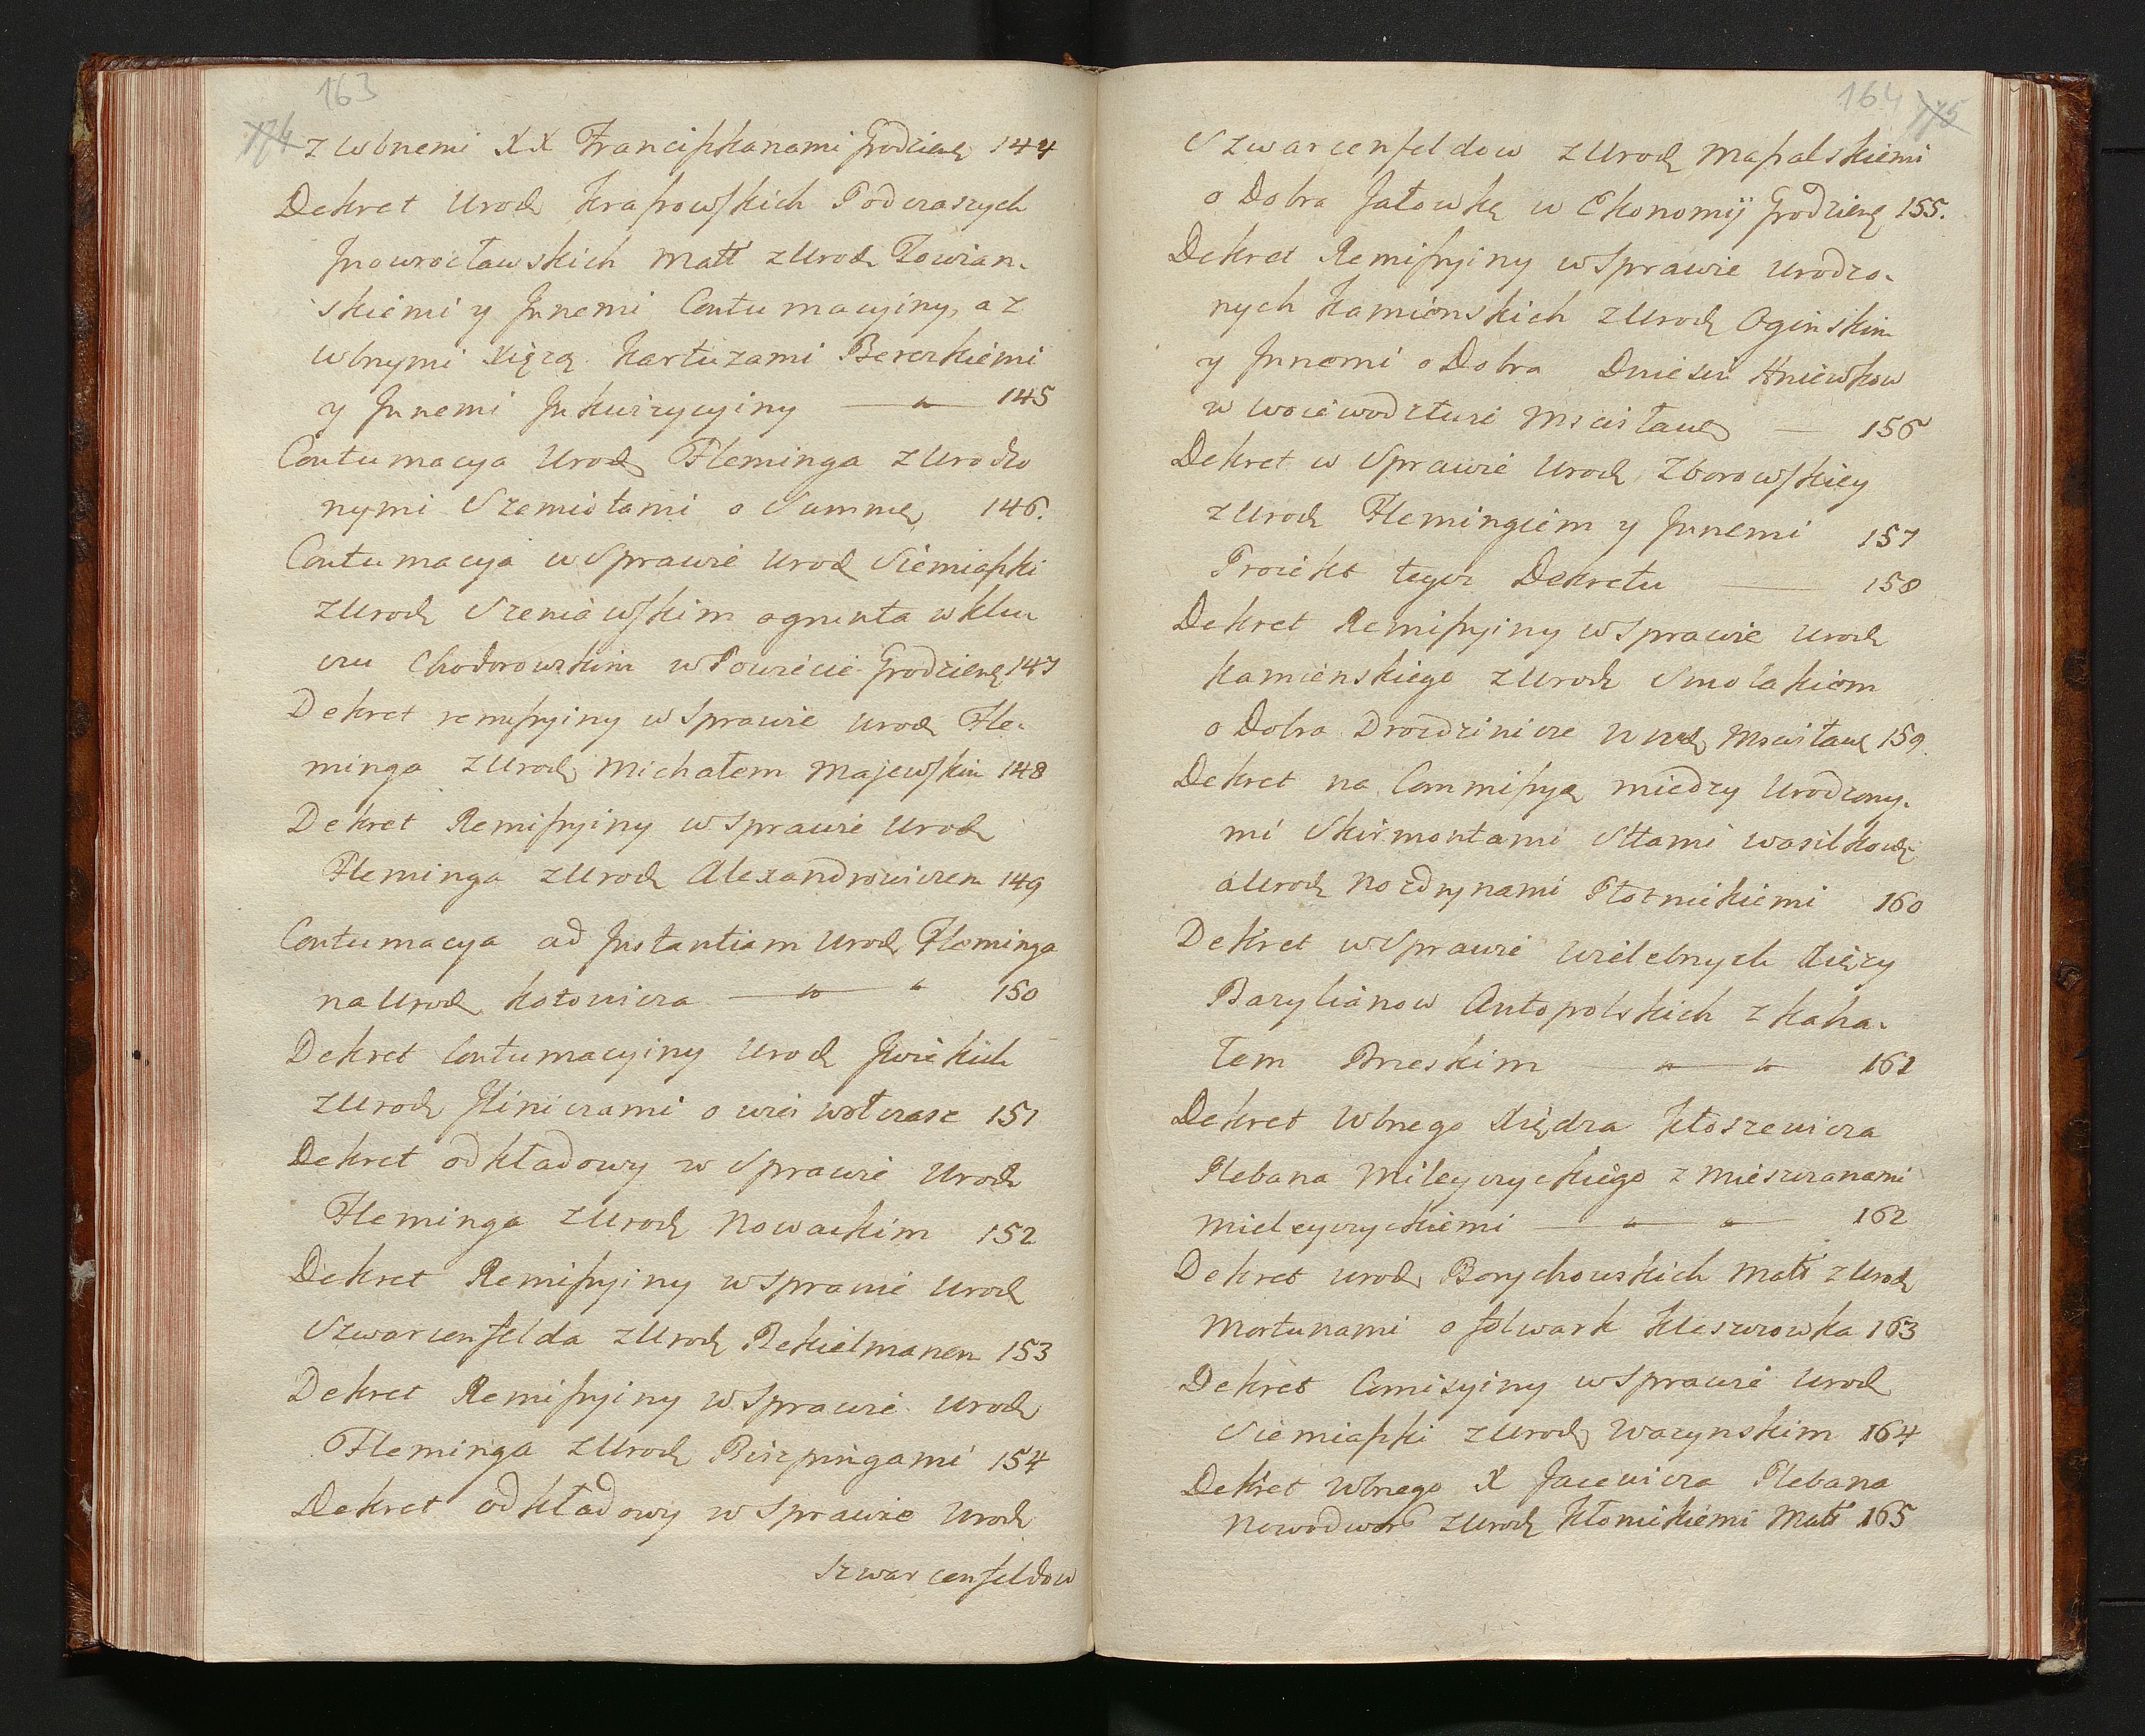 163
174
z Wbnemi XX Franciszkanami Grodzieńs 144
Dekret Urodz Krassowskich Podczaszych
Jnowrocławskich Małż z Urodz Towian-
skiemi y Jnnemi Contumacyiny, a z
Wbnymi Xięzą Kartuzami Berezkiemi
y Jnnemi Jnkwizycyiny — " — 145
Contumacya Urodz Fleminga z Urodzo
nymi Szemiotami o Summę 146.
Contumacya w Sprawie Urodz Siemiaszki
z Urodz Szeniawskim o grunta w klu
czu Chodorowskim w Powiecie Grodzieńs 147
Dekret remissyiny w Sprawie Urodz Fle-
minga z Urodz Michałem Majewskim 148
Dekret Remissyiny w Sprawie Urodz
Fleminga z Urodz Alexandrowiczem 149
Contumacya ad Jnstantiam Urodz Fleminga
na Urodz Kotowicza — " — " 150
Dekret Contumacyiny Urodz
z Urodz o wieś Wołczase 151
Dekret odkładowy w Sprawie Urodz
Fleminga z Urodz Nowackim 152
Dekret Remissyiny w Sprawie Urodz
Szwarcenfelda z Urodz Rekielmanem 153
Dekret Remissyiny w Sprawie Urodz
Fleminga z Urodz Bispingami 154
Dekret odkładowy w Sprawie Urodz
Szwarcenfeldow
164
175
Szwarcenfeldow z Urodz Massalskiemi
o Dobra Jałowkę w Ekonomij Grodzieńs 155.
Dekret Remissyiny w Sprawie Urodzo-
nych Kamienskich z Urodz Oginskim
y Jnnemi o Dobra Kniewkow
w Woiewodztwie Mscisławs — 156
Dekret w Sprawie Urodz Zborowskiey
z Urodz Flemingiem y Jnnemi 157
Proiekt tegoż Dekretu — 158
Dekret Remissyiny w Sprawie Urodz
Kamienskiego z Urodz Smolakiem
o Dobra Drozdzinicze w Wdz Mscisławs 159
Dekret na Commissyą między Urodzony-
mi Skirmontami Sttami Wasilkowskˌ
a Urodz Nozdrynami Płotnickiemi 160
Dekret w Sprawie Wielebnych Xięzy
Bazylianow Antopolskich z Kaha-
łem Brzeskim — " — " 161
Dekret Wbnego Xiędza Kłoszewicza
Plebana Mileyczyckiego z Mieszczanami
Mieleyczyckiemi — " — " — 162
Dekret Urodz Borychowskich Małż z Urodz
Mortunami o folwark Kleszczowka 163
Dekret Comisyiny w Sprawie Urodz
Siemiaszki z Urodz Wazynskim 164
Dekret Wbnego X Jacewicza Plebana
Nowodwors z Urodz Kłonickiemi Małż 165